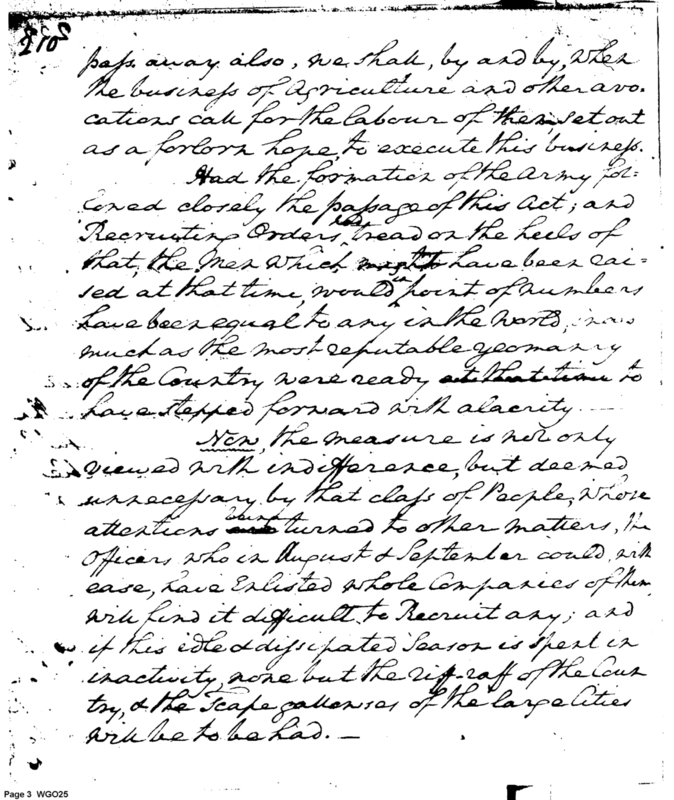 pass away also, we shall, by and by, when
the business of Agriculture and other avo-
cations call for the labour of them, set out
as a forlorn hope, to execute this business.
Had the formation of the Army fol-
lowed closely the passage of this Act; and
Recruiting Orders had tread on the heels of
that, the Men which might have been rai-
sed at that time, would in point of numbers
have been equal to any in the World, inas
much as the most reputable yeomanry
of the Country were ready at that time to
have stepped forward with alacrity.—
Now, the measure is not only
viewed with indifference, but deemed
unnecessary by that class of People, whose
attentions being are turned to other matters, the
Officers who in August & September could, with
ease, have Enlisted whole Companies of them
will find it difficult to Recruit any; and
if this idle & dissipated Season is spent in
inactivity, none but the riff-raff of the Coun
try, & the Scape gallowses of the large Cities
will be to be had.—
Page 3 WGO25